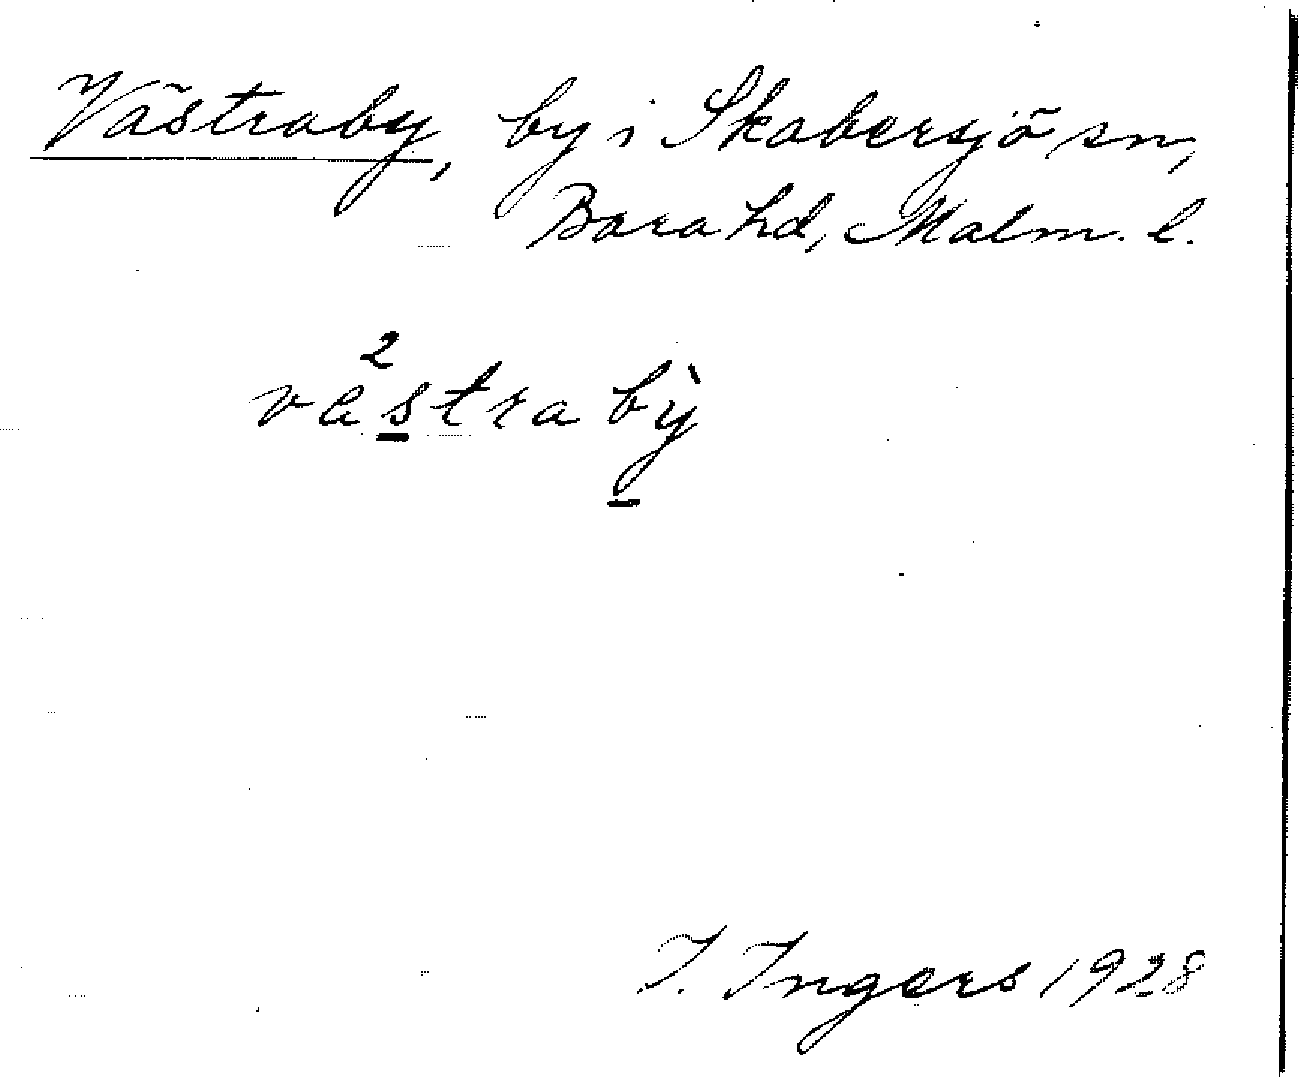 Västraby, by i Skabersjö sn,
Bara hd, Malm. l.
2
västrabỳ
I. Ingers 1928